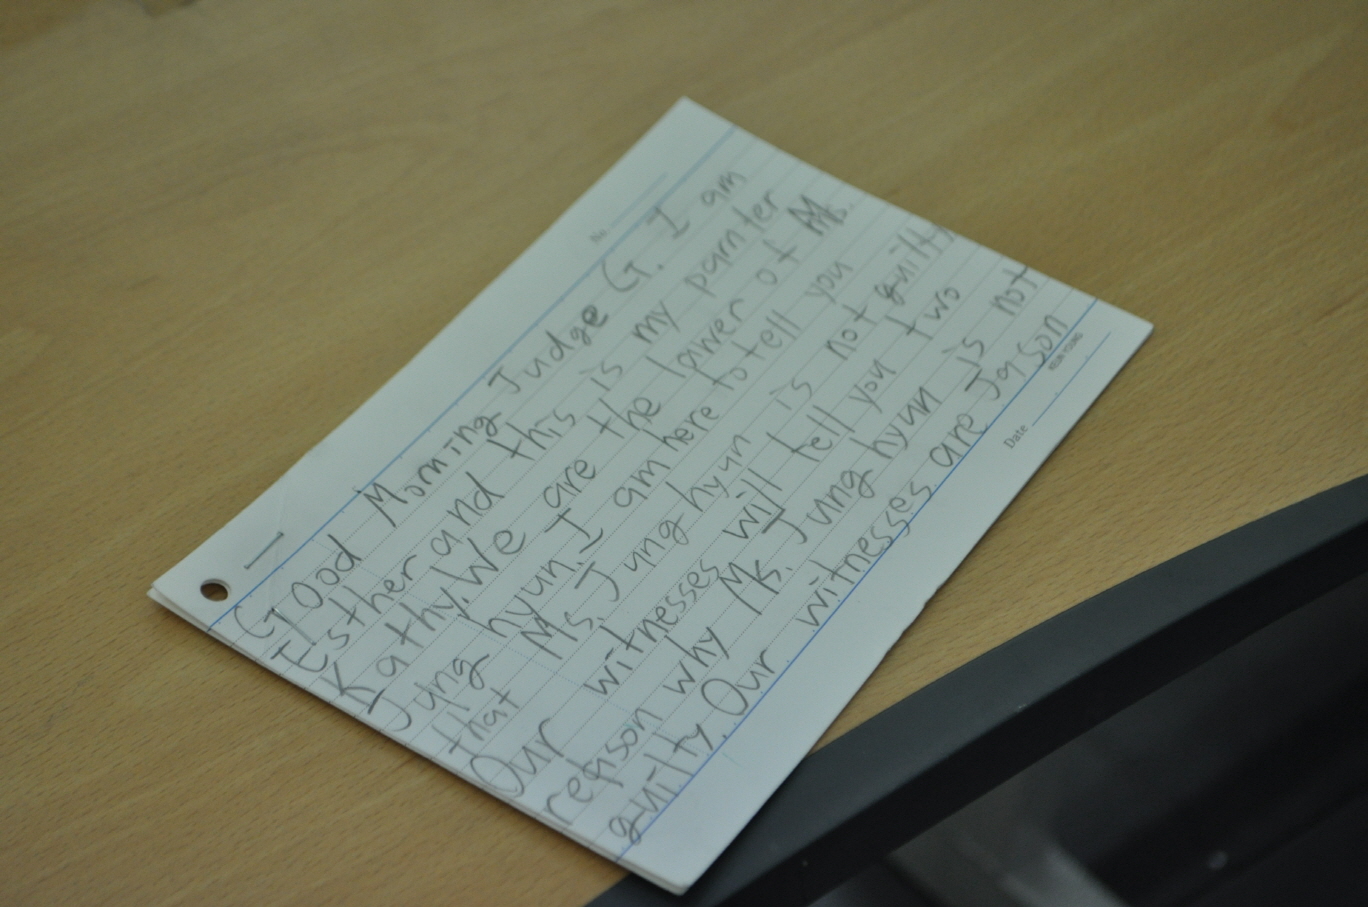 No
1
Good Morning Judge G. I am
Esther and this is my parnter
Kathy. We are the lawer of Ms.
Jung hyun. I am here to tell you
that Ms. Jung hyun is not guilty
Our witnesses will tell you two
reason why Ms. Jung hyun is not
guilty. Our witnesses are Jayson
KEUN YOUNG
Date